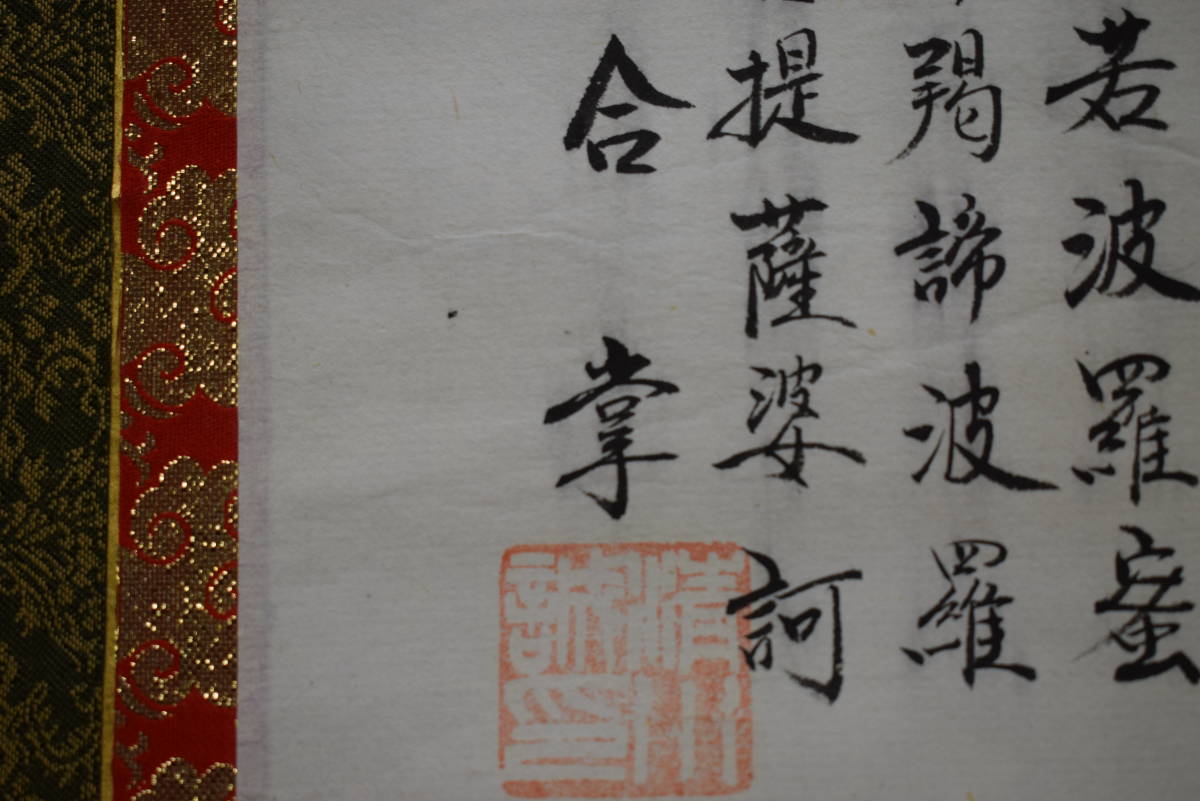 若波羅蜜
羯諦波羅
提薩婆訶
合掌